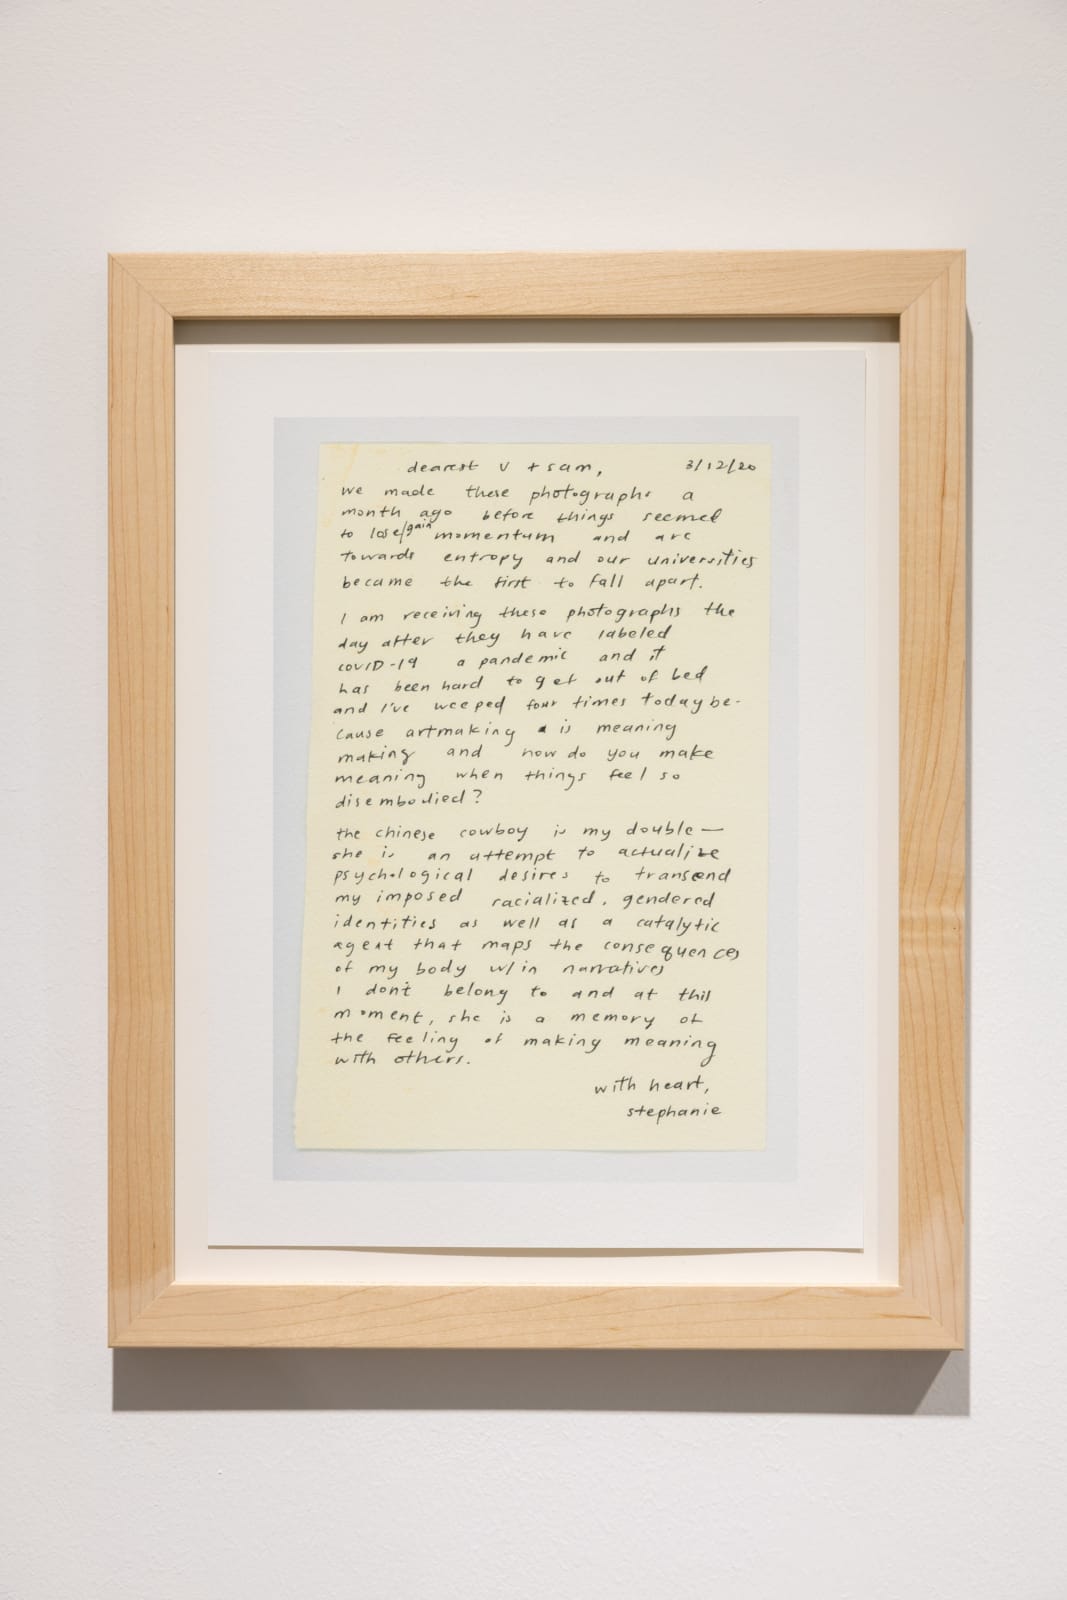 dearest v + sam, 3/12/20
we made these photographs a
month ago before things seemed
to lose/gain momentum and arc
towards entropy and our universities
became the first to fall apart.
I am receiving these photographs the
day after they have labeled
COVID-19 a pandemic and it
has been hard to get out of bed
and I've weeped four times today be-
cause artmaking is meaning
making and how do you make
meaning when things feel so
disembodied?
the chinese cowboy is my double—
she is an attempt to actualize
psychological desires to transcend
my imposed racialized, gendered
identities as well as a catalytic
agent that maps the consequences
of my body w/in narratives
I don't belong to and at this
moment, she is a memory of
the feeling of making meaning
with others.
with heart,
stephanie